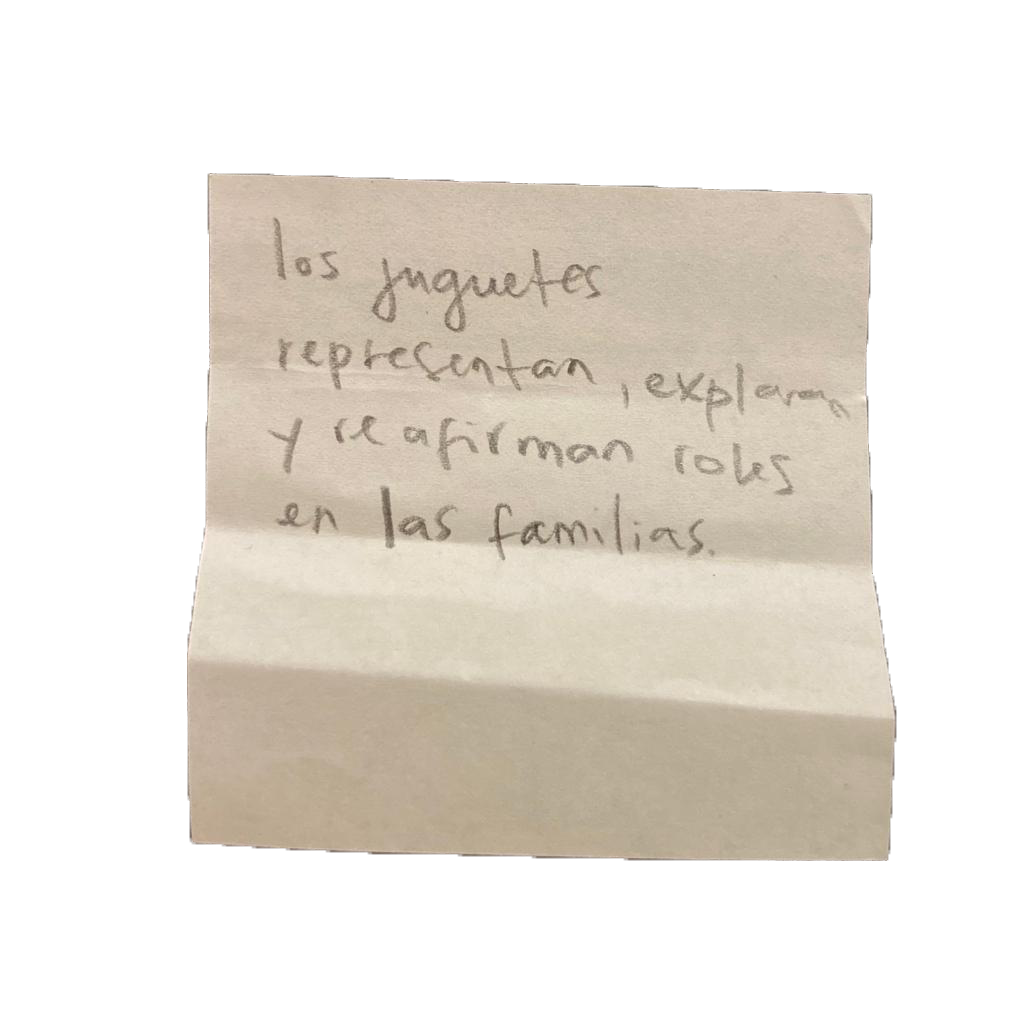 los juguetes
representan, exploran
y reafirman roles
en las familias.